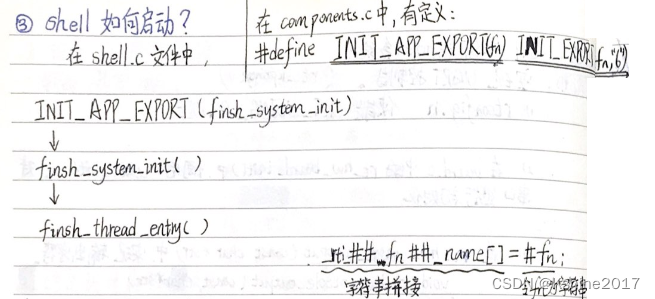 ③ shell 如何启动?
在 shell.c 文件中,
在 components.c中,有定义:
#define INIT_APP_EXPORT(fn) INIT_EXPORT(fn,"6")
INIT_APP_EXPORT (finsh_system_init)
↓
finsh_system_init( )
↓
finsh_thread_entry( )
_rti_##_fn ##_name[] = #fn;
字符串拼接
CSDN @
ine2017